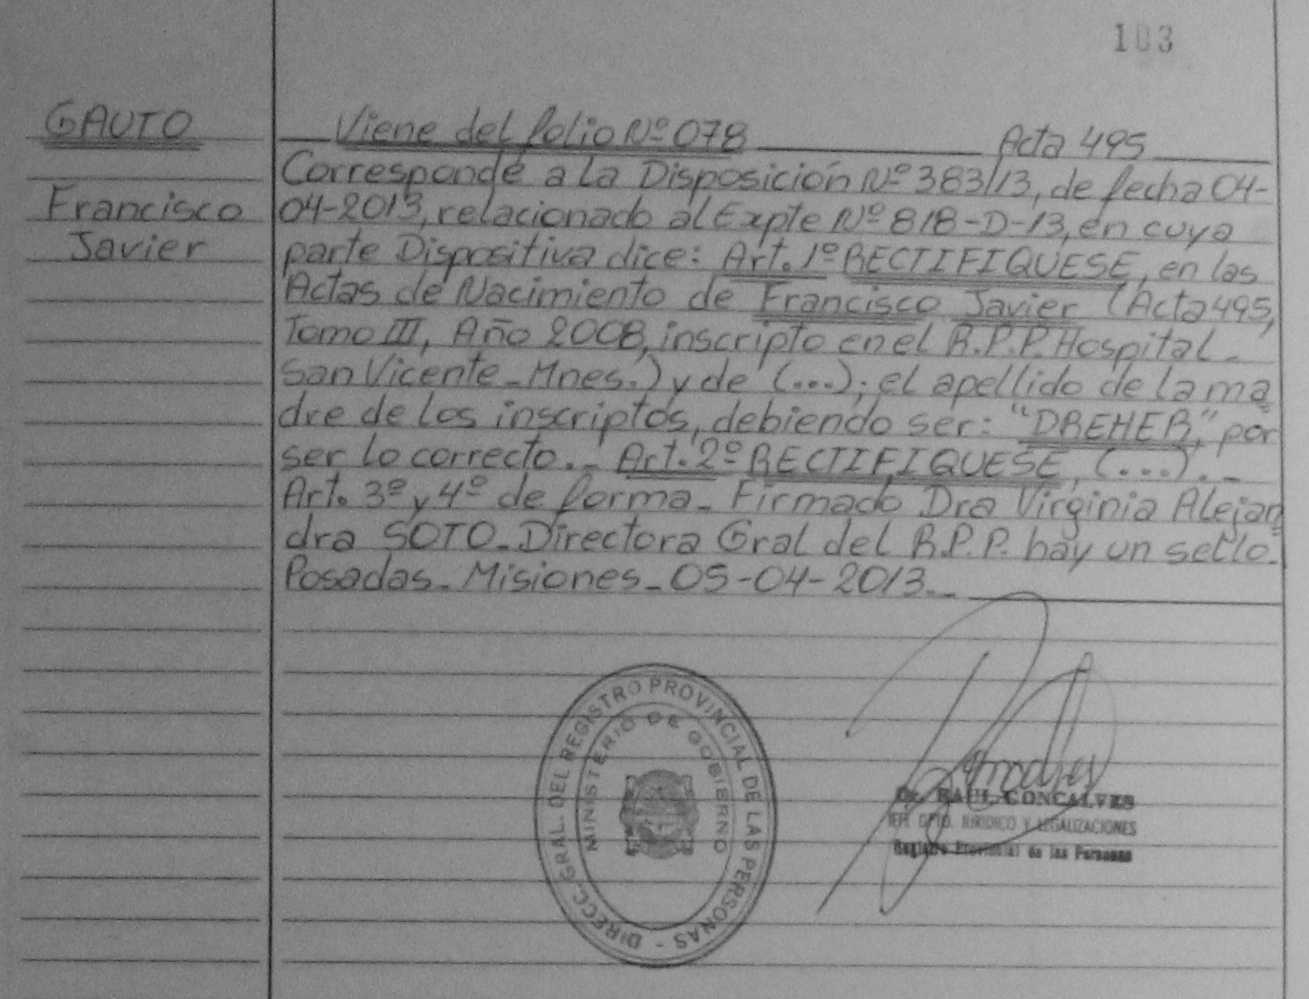 103
GAUTO
Francisco
Javier
Viene del folio Nº 078 Acta 495
Corresponde a la Disposición Nº 383/13, de fecha 04-
04-2013, relacionado al Expte Nº 818-D-13, en cuya
parte Dispositiva dice: Art. 1º RECTIFIQUESE, en las
Actas de Nacimiento de Francisco Javier (Acta 495,
Tomo III, Año 2008, inscripto en el R.P.P. Hospital -
San Vicente - Mnes.) y de (...); el apellido de la ma
dre de los inscriptos, debiendo ser: "DREHER," por
ser lo correcto. - Art. 2º RECTIFIQUESE, (...). -
Art. 3º y 4º de forma - Firmado Dra Virginia Alejan
dra SOTO - Directora Gral del R.P.P. hay un sello -
Posadas - Misiones - 05-04-2013. -
DIRECC. GRAL. DEL REGISTRO PROVINCIAL DE LAS PERSONAS -
MINISTERIO DE GOBIERNO
Dr. RAUL GONCALVES
JEFE DPTO. JURIDICO Y LEGALIZACIONES
Registro Provincial de las Personas